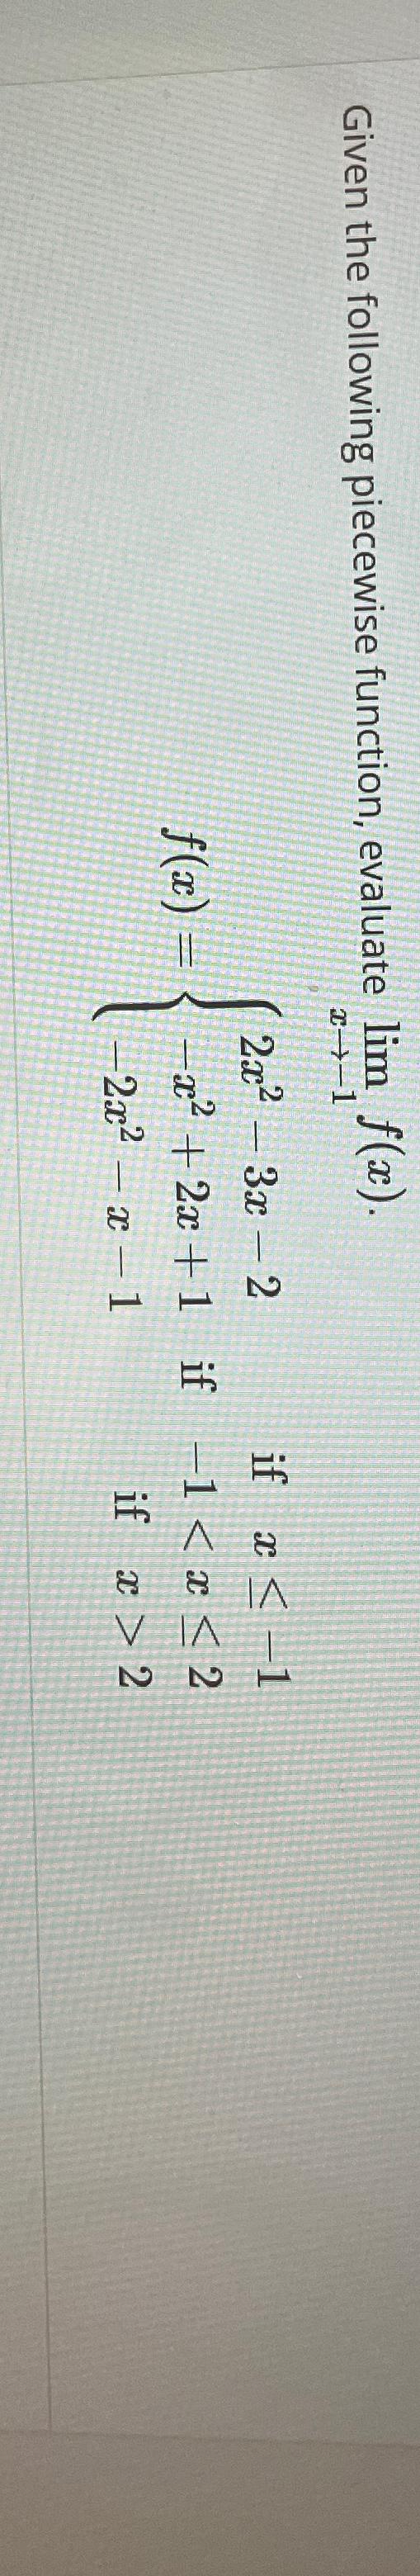 Given the following piecewise function, evaluate lim x→−1 f(x).
f(x) = { 2x² − 3x − 2 if x ≤ −1
−x² + 2x + 1 if −1 < x ≤ 2
−2x² − x − 1 if x > 2